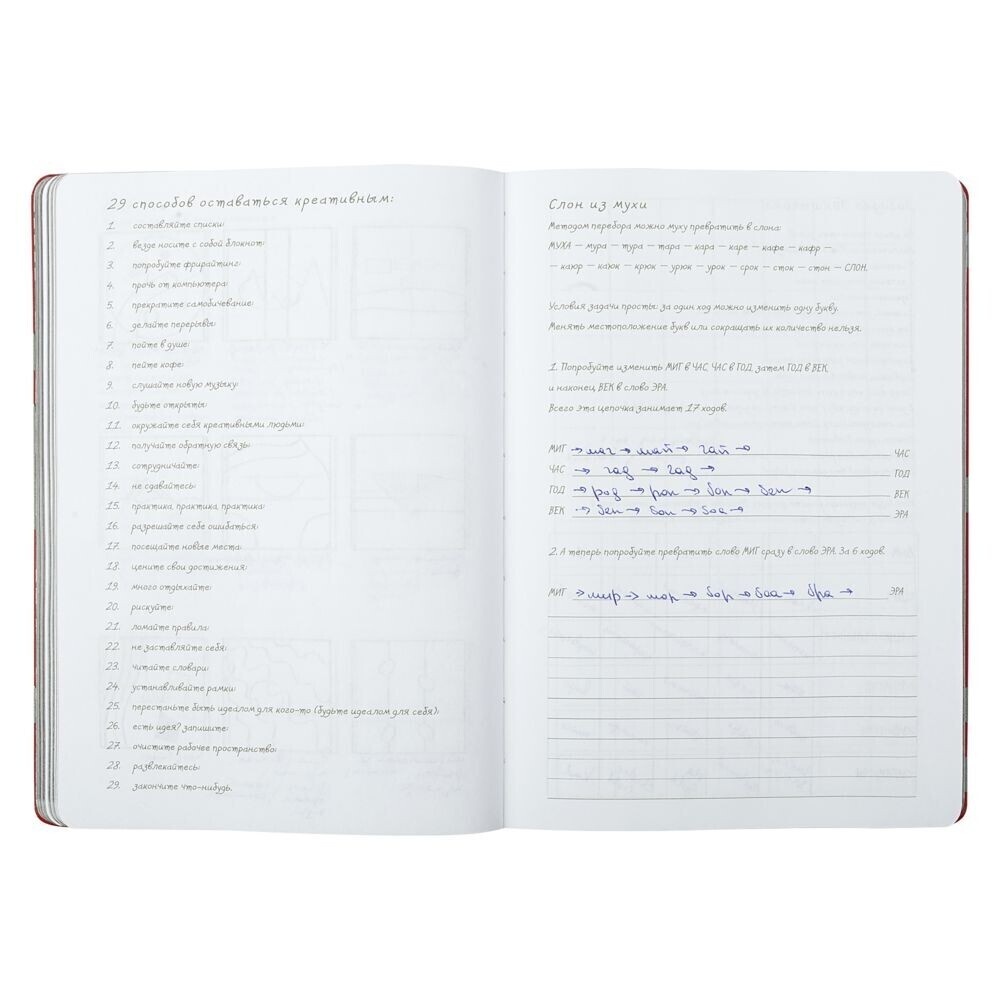 29 способов оставаться креативным:
1. составляйте списки;
2. везде носите с собой блокнот;
3. попробуйте фрирайтинг;
4. прочь от компьютера;
5. прекратите самобичевание;
6. делайте перерывы;
7. пойте в душе;
8. пейте кофе;
9. слушайте новую музыку;
10. будьте открыты;
11. окружайте себя креативными людьми;
12. получайте обратную связь;
13. сотрудничайте;
14. не сдавайтесь;
15. практика, практика, практика;
16. разрешайте себе ошибаться;
17. посещайте новые места;
18. цените свои достижения;
19. много отдыхайте;
20. рискуйте;
21. ломайте правила;
22. не заставляйте себя;
23. читайте словари;
24. устанавливайте рамки;
25. перестаньте быть идеалом для кого-то (будьте идеалом для себя);
26. есть идея? запишите;
27. очистите рабочее пространство;
28. развлекайтесь;
29. закончите что-нибудь.
Слон из мухи
Методом перебора можно муху превратить в слона:
МУХА — мура — тура — тара — кара — каре — кафе — кафр —
— каюр — каюк — крюк — урюк — урок — срок — сток — стон — СЛОН.
Условия задачи просты: за один ход можно изменить одну букву.
Менять местоположение букв или сокращать их количество нельзя.
1. Попробуйте изменить МИГ в ЧАС, ЧАС в ГОД, затем ГОД в ВЕК,
и наконец, ВЕК в слово ЭРА.
Всего эта цепочка занимает 17 ходов.
МИГ → маг → май → чай → ЧАС
ЧАС → гад → гад → ГОД
ГОД → род → рок → бок → бек → ВЕК
ВЕК → бек → бок → боа → ЭРА
2. А теперь попробуйте превратить слово МИГ сразу в слово ЭРА. За 6 ходов.
МИГ → мир → мор → бор → боа → бра → ЭРА